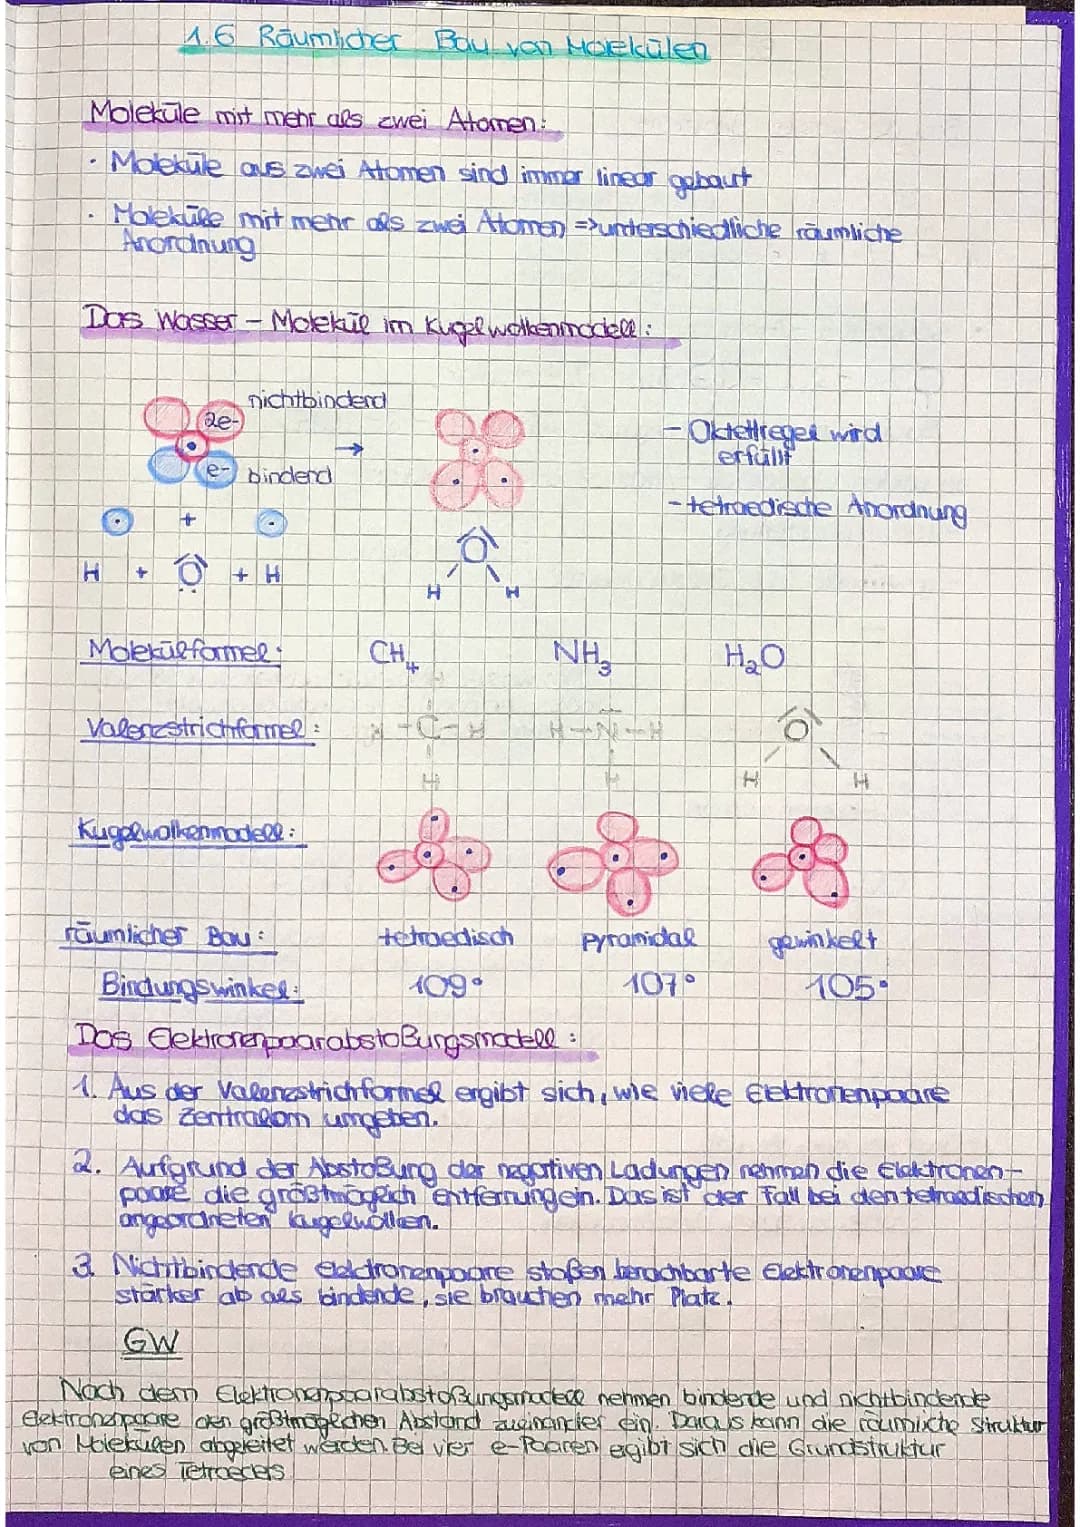 1.6 Räumlicher Bau von Molekülen
Moleküle mit mehr als zwei Atomen:
· Moleküle aus zwei Atomen sind immer linear gebaut
· Moleküle mit mehr als zwei Atomen => unterschiedliche räumliche
Anordnung
Das Wasser - Molekül im Kugelwolkenmodell:
nichtbinderd
2e-
e- bindend
→
- Oktettregel wird
erfüllt
- tetraedische Anordnung
+
H + O + H
O
H H
Molekülformel: CH4 NH3 H2O
Valenzstrichformel: H-C-H H-N-H O
H H H H
Kugelwolkenmodell:
räumlicher Bau: tetraedisch pyramidal gewinkelt
Bindungswinkel: 109° 107° 105°
Das Elektronenpaarabstoßungsmodell:
1. Aus der Valenzstrichformel ergibt sich, wie viele Elektronenpaare
das Zentralom umgeben.
2. Aufgrund der Abstoßung der negativen Ladungen nehmen die Elektronen-
paare die größtmöglich entfernung ein. Das ist der Fall bei den tetraedischen
angeordneten kugelwolken.
3. Nichtbindende Elektronenpaare stoßen benachbarte Elektronenpaare
stärker ab als bindende, sie brauchen mehr Platz.
GW
Nach dem Elektronenpaarabstoßungsmodell nehmen bindende und nichtbindende
Elektronenpaare den größtmöglichen Abstand zueinander ein. Daraus kann die räumliche Struktur
von Molekülen abgeleitet werden. Bei vier e-Paaren egibt sich die Grundstruktur
eines Tetraeders